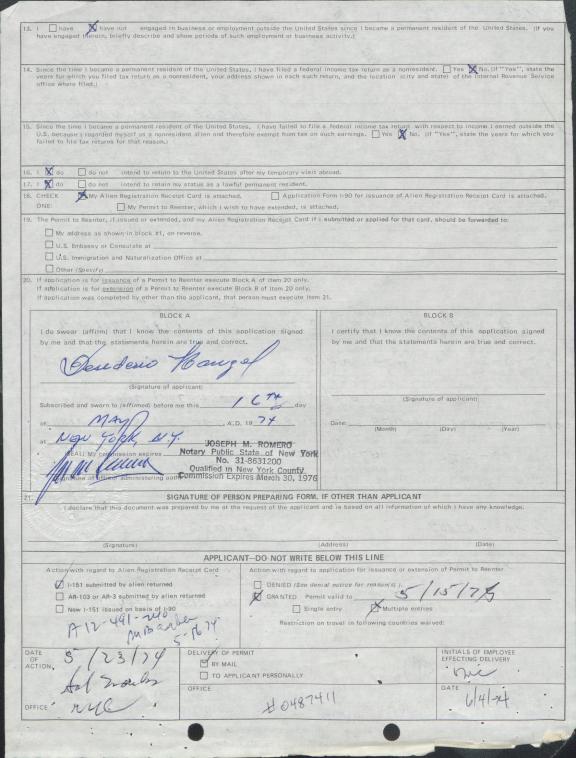 13. I ☐ have ☒ have not engaged in business or employment outside the United States since I became a permanent resident of the United States. (If you
have engaged therein, briefly describe and show periods of such employment or business activity.)
14. Since the time I became a permanent resident of the United States, I have filed a federal income tax return as a nonresident. ☐ Yes ☒ No. (If "Yes", state the
years for which you filed tax return as a nonresident, your address shown in each such return, and the location (city and state) of the Internal Revenue Service
office where filed.)
15. Since the time I became a permanent resident of the United States, I have failed to file a federal income tax return with respect to income I earned outside the
U.S. because I regarded myself as a nonresident alien and therefore exempt from tax on such earnings. ☐ Yes ☒ No. (If "Yes", state the years for which you
failed to file tax returns for that reason.)
16. I ☒ do ☐ do not intend to return to the United States after my temporary visit abroad.
17. I ☒ do ☐ do not intend to retain my status as a lawful permanent resident.
18. CHECK ☒ My Alien Registration Receipt Card is attached. ☐ Application Form I-90 for issuance of Alien Registration Receipt Card is attached.
ONE: ☐ My Permit to Reenter, which I wish to have extended, is attached.
19. The Permit to Reenter, if issued or extended, and my Alien Registration Receipt Card if I submitted or applied for that card, should be forwarded to:
☐ My address as shown in block #1, on reverse.
☐ U.S. Embassy or Consulate at
☐ U.S. Immigration and Naturalization Office at
☐ Other (Specify)
20. If application is for issuance of a Permit to Reenter execute Block A of item 20 only.
If application is for extension of a Permit to Reenter execute Block B of item 20 only.
If application was completed by other than the applicant, that person must execute item 21.
BLOCK A
I do swear (affirm) that I know the contents of this application signed
by me and that the statements herein are true and correct.
(Signature of applicant)
Subscribed and sworn to (affirmed) before me this 16TH day
of MAY A.D. 1974
at New York, N.Y.
(SEAL) My commission expires
(Signature of officer administering oath)
JOSEPH M. ROMERO
Notary Public State of New York
No. 31-8631200
Qualified in New York County
Commission Expires March 30, 1976
BLOCK B
I certify that I know the contents of this application signed
by me and that the statements herein are true and correct.
(Signature of applicant)
Date:
(Month) (Day) (Year)
21. SIGNATURE OF PERSON PREPARING FORM, IF OTHER THAN APPLICANT
I declare that this document was prepared by me at the request of the applicant and is based on all information of which I have any knowledge.
(Signature) (Address) (Date)
APPLICANT—DO NOT WRITE BELOW THIS LINE
Action with regard to Alien Registration Receipt Card
☑ I-151 submitted by alien returned
☐ AR-103 or AR-3 submitted by alien returned
☐ New I-151 issued on basis of I-90
A12-491-240
Action with regard to application for issuance or extension of Permit to Reenter
☐ DENIED (See denial notice for reason(s).)
☒ GRANTED Permit valid to 5/15/75
☐ Single entry ☒ Multiple entries
Restriction on travel in following countries waived:
DATE
OF
ACTION 5/23/74
OFFICE NYC
DELIVERY OF PERMIT
☑ BY MAIL
☐ TO APPLICANT PERSONALLY
OFFICE
#0487411
INITIALS OF EMPLOYEE
EFFECTING DELIVERY
DATE
6/4/74